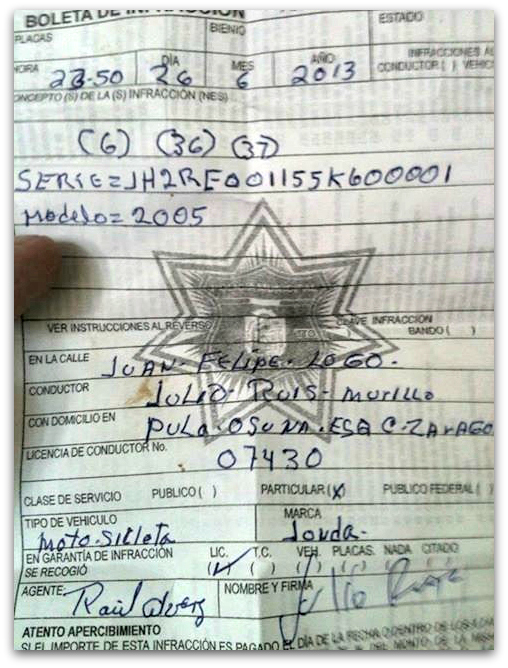 BOLETA DE INFRACCIÓN
PLACAS BIENIO ESTADO
HORA 23-50 DÍA 26 MES 6 AÑO 2013 INFRACCIONES AL
CONDUCTOR ( ) VEHIC
CONCEPTO (S) DE LA (S) INFRACCIÓN (NES)
(6) (36) (37)
SERIE=JH2RE001155K600001
Modelo= 2005
VER INSTRUCCIONES AL REVERSO CLAVE INFRACCION
BANDO ( )
EN LA CALLE JUAN-FELIPE-LOGO-
CONDUCTOR JULIO-RUIS-MURILLO
CON DOMICILIO EN PULA-OSUNA-ESQ C-ZARAGO
LICENCIA DE CONDUCTOR No. 07430
CLASE DE SERVICIO PUBLICO ( ) PARTICULAR (X) PUBLICO FEDERAL ( )
TIPO DE VEHICULO MARCA
Moto-Sicleta Jonda-
EN GARANTÍA DE INFRACCIÓN LIC. T.C. VEH. PLACAS. NADA CITADO
SE RECOGIÓ
AGENTE: Raúl NOMBRE Y FIRMA Julio
ATENTO APERCIBIMIENTO
SI EL IMPORTE DE ESTA INFRACCIÓN ES PAGADO EL DÍA DE LA FECHA O DENTRO DE LOS